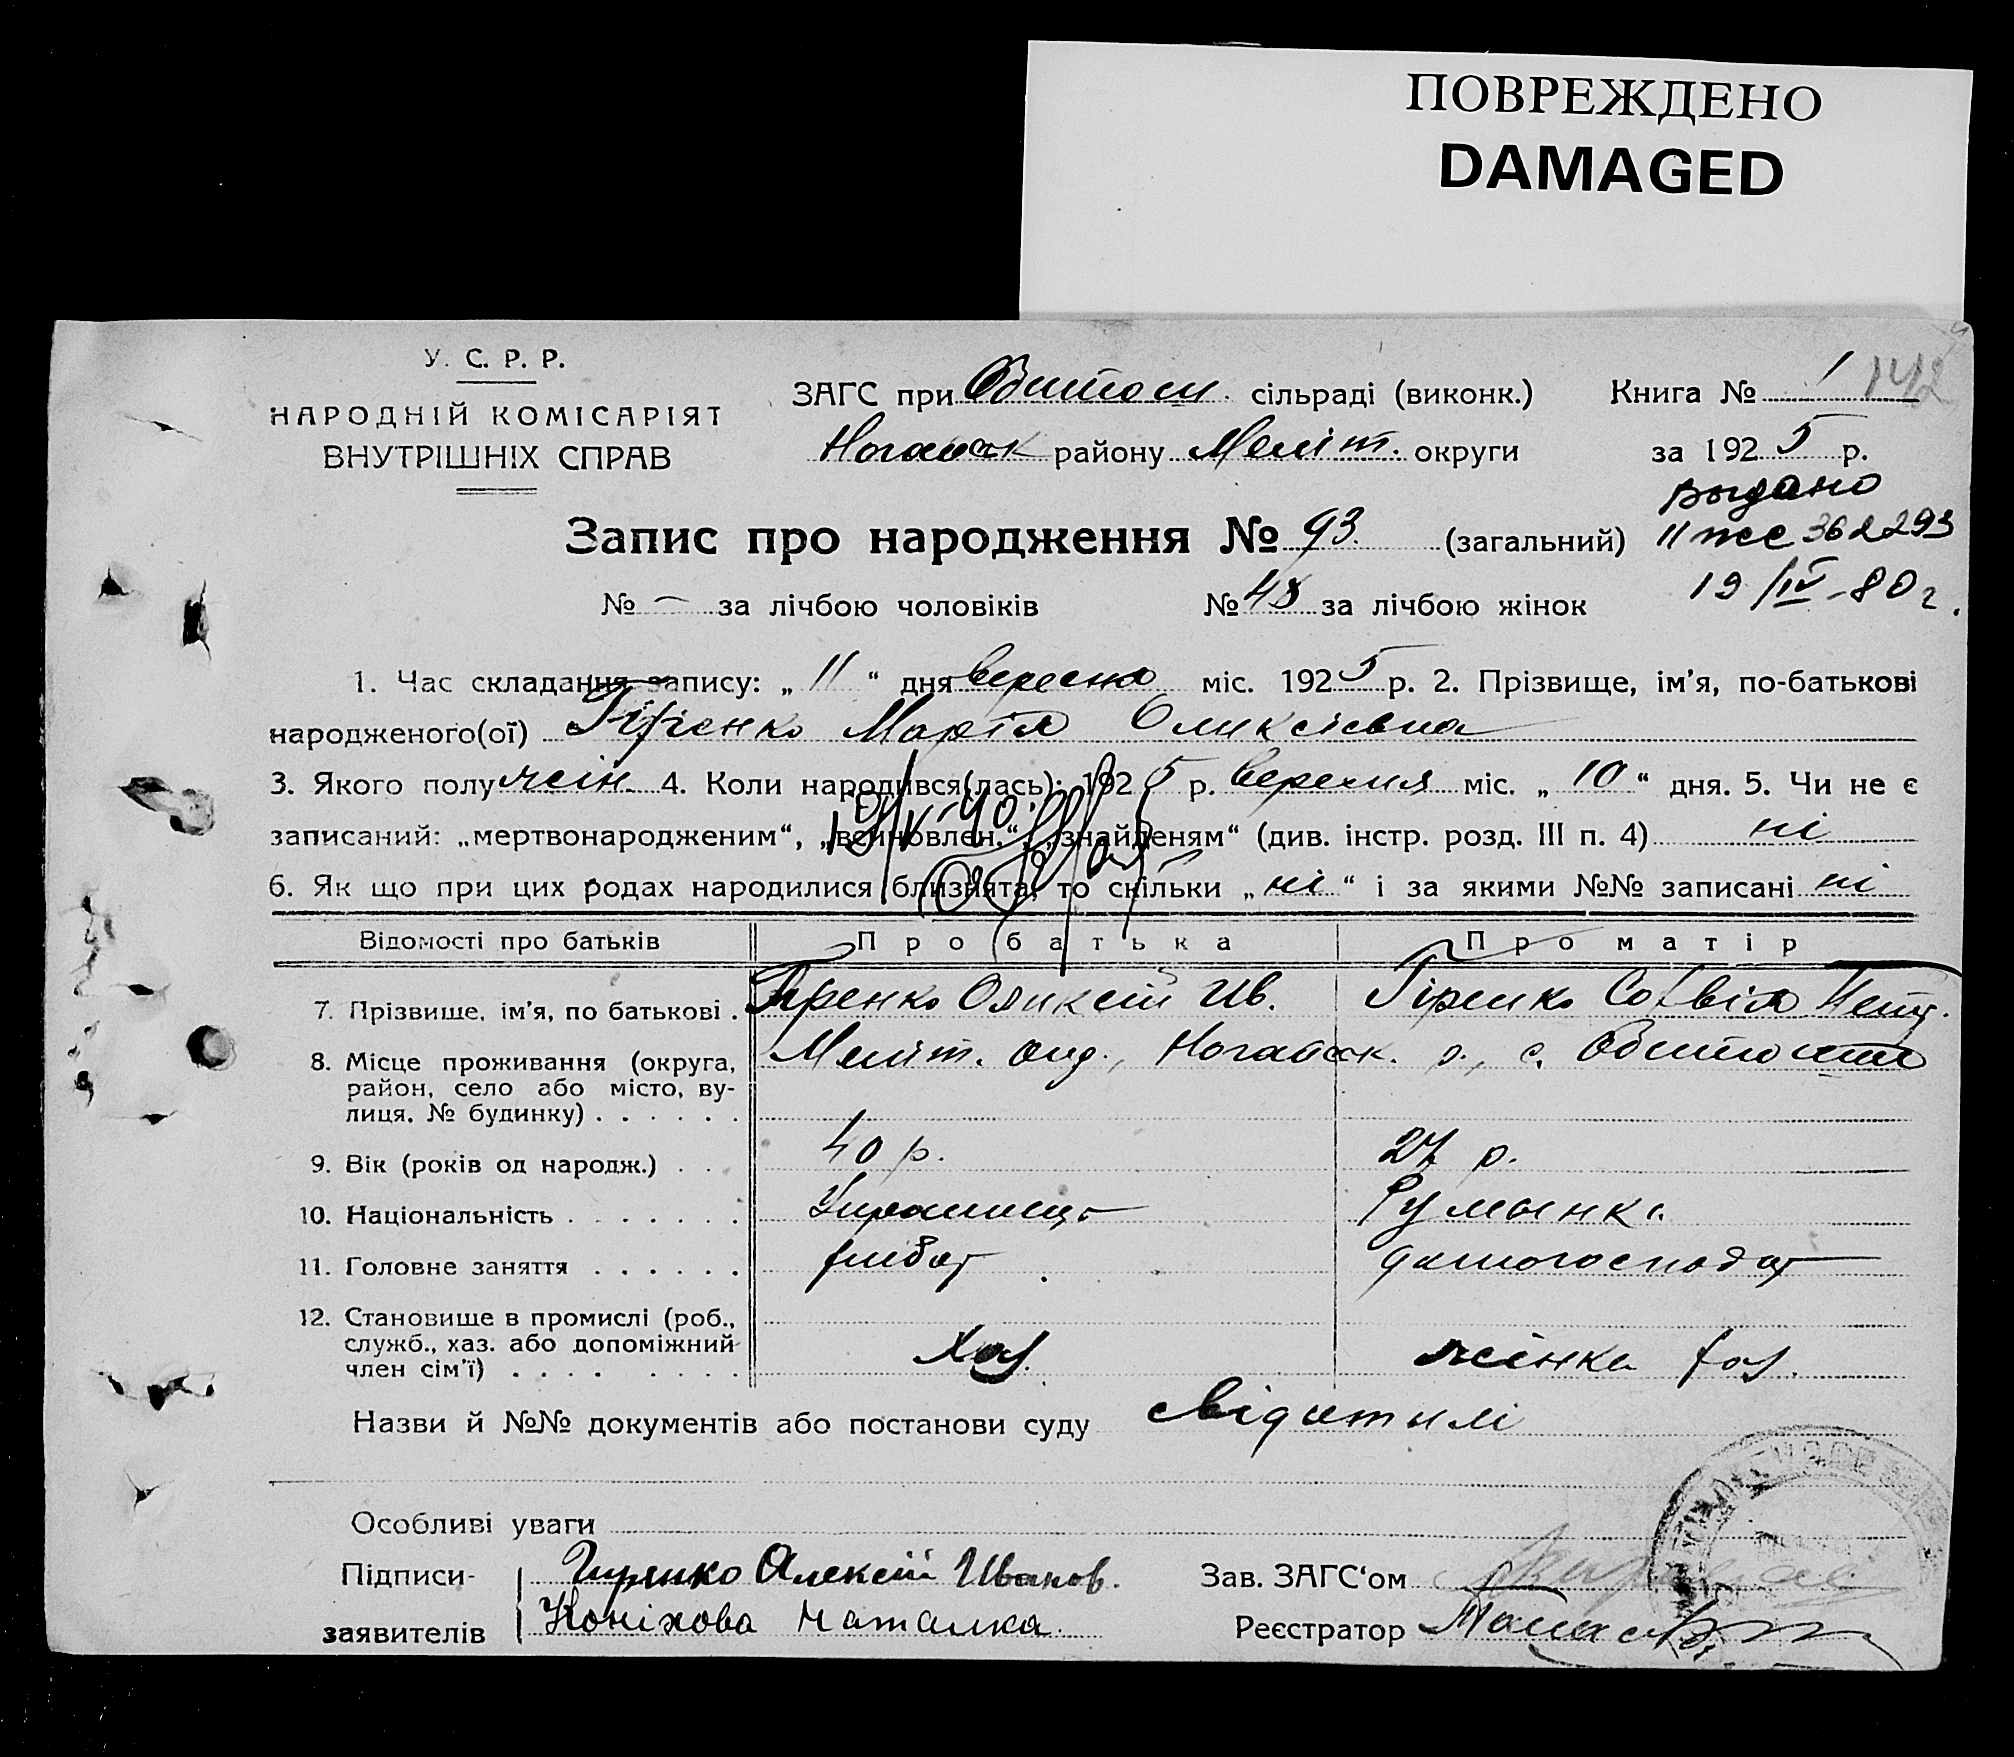 ПОВРЕЖДЕНО
DAMAGED
У. С. Р. Р.
НАРОДНІЙ КОМІСАРІЯТ
ВНУТРІШНІХ СПРАВ
ЗАГС при Обиточн. сільраді (виконк.)
Книга № 1 142
Ногайск району Меліт. округи
за 1925 р.
Выдано
II жс 362293
19/IV-80 г.
Запис про народження № 93 (загальний)
№ – за лічбою чоловіків № 48 за лічбою жінок
1. Час складання запису: „11“ дня вересня міс. 1925 р. 2. Прізвище, ім'я, по-батькові
народженого(ої) Гірієнко Марія Оликсієвна
3. Якого полу жін. 4. Коли народився(лась): 1925 р. вересня міс. „10“ дня. 5. Чи не є
записаний: „мертвонародженим“, „всиновлен.“, „знайденям“ (див. інстр. розд. III п. 4) ні
6. Як що при цих родах народилися близнята, то скільки „ні“ і за якими №№ записані ні
Відомості про батьків Про батька Про матір
7. Прізвище, ім'я, по батькові . Гіренко Оликсій Ив. Гіренко Софвія Петр.
8. Місце проживання (округа, Меліт. окр., Ногайск. р., с. Обиточна
район, село або місто, ву-
лиця, № будинку) . . . . . .
9. Вік (років од народж.) . . 40 р. 27 р.
10. Національність . . . . . . . Українець Румынка
11. Головне заняття . . . . . . хлібор домогосподар
12. Становище в промислі (роб.,
служб., хаз. або допоміжний
член сім'ї) . . . . . . . . Хаз. жінка хаз.
Назви й №№ документів або постанови суду свідитилі
Особливі уваги
Підписи- Гиренко Алексій Иванов. Зав. ЗАГС'ом
заявителів Коніхова Наталка Реєстратор